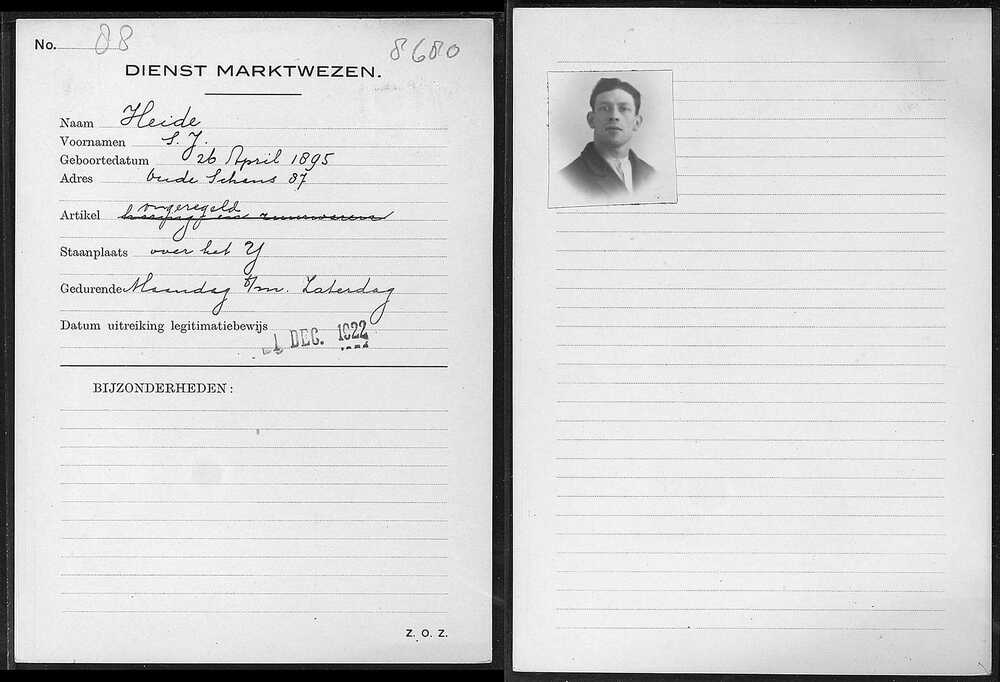 No. 88
8680
DIENST MARKTWEZEN.
Naam Heide
Voornamen S. J.
Geboortedatum 26 April 1895
Adres Oude Schans 87
ongeregeld
Artikel en zuurwaren
Staanplaats over het Y
Gedurende Maandag t/m. Zaterdag
Datum uitreiking legitimatiebewijs
1 DEC. 1922
BIJZONDERHEDEN:
Z. O. Z.